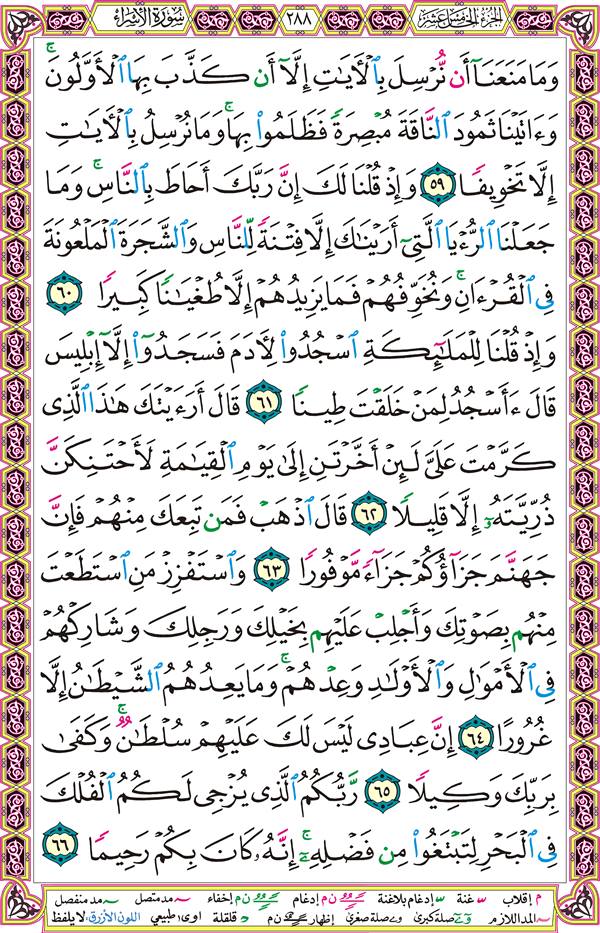 الجزء الخامس عشر
٢٨٨
سورة الإسراء
وَمَا مَنَعَنَآ أَن نُّرْسِلَ بِٱلْأٓيَٰتِ إِلَّآ أَن كَذَّبَ بِهَا ٱلْأَوَّلُونَۚ
وَءَاتَيْنَا ثَمُودَ ٱلنَّاقَةَ مُبْصِرَةً فَظَلَمُوا۟ بِهَاۚ وَمَا نُرْسِلُ بِٱلْأٓيَٰتِ
إِلَّا تَخْوِيفًا ٥٩ وَإِذْ قُلْنَا لَكَ إِنَّ رَبَّكَ أَحَاطَ بِٱلنَّاسِۚ وَمَا
جَعَلْنَا ٱلرُّءْيَا ٱلَّتِىٓ أَرَيْنَٰكَ إِلَّا فِتْنَةً لِّلنَّاسِ وَٱلشَّجَرَةَ ٱلْمَلْعُونَةَ
فِى ٱلْقُرْءَانِۚ وَنُخَوِّفُهُمْ فَمَا يَزِيدُهُمْ إِلَّا طُغْيَٰنًا كَبِيرًا ٦٠
وَإِذْ قُلْنَا لِلْمَلَٰٓئِكَةِ ٱسْجُدُوا۟ لِأٓدَمَ فَسَجَدُوٓا۟ إِلَّآ إِبْلِيسَ
قَالَ ءَأَسْجُدُ لِمَنْ خَلَقْتَ طِينًا ٦١ قَالَ أَرَءَيْتَكَ هَٰذَا ٱلَّذِى
كَرَّمْتَ عَلَىَّ لَئِنْ أَخَّرْتَنِ إِلَىٰ يَوْمِ ٱلْقِيَٰمَةِ لَأَحْتَنِكَنَّ
ذُرِّيَّتَهُۥٓ إِلَّا قَلِيلًا ٦٢ قَالَ ٱذْهَبْ فَمَن تَبِعَكَ مِنْهُمْ فَإِنَّ
جَهَنَّمَ جَزَآؤُكُمْ جَزَآءً مَّوْفُورًا ٦٣ وَٱسْتَفْزِزْ مَنِ ٱسْتَطَعْتَ
مِنْهُم بِصَوْتِكَ وَأَجْلِبْ عَلَيْهِم بِخَيْلِكَ وَرَجِلِكَ وَشَارِكْهُمْ
فِى ٱلْأَمْوَٰلِ وَٱلْأَوْلَٰدِ وَعِدْهُمْۚ وَمَا يَعِدُهُمُ ٱلشَّيْطَٰنُ إِلَّا
غُرُورًا ٦٤ إِنَّ عِبَادِى لَيْسَ لَكَ عَلَيْهِمْ سُلْطَٰنٌۚ وَكَفَىٰ
بِرَبِّكَ وَكِيلًا ٦٥ رَّبُّكُمُ ٱلَّذِى يُزْجِى لَكُمُ ٱلْفُلْكَ
فِى ٱلْبَحْرِ لِتَبْتَغُوا۟ مِن فَضْلِهِۦٓۚ إِنَّهُۥ كَانَ بِكُمْ رَحِيمًا ٦٦
م إقلاب غنة إدغام بلاغنة ن م إدغام ن م إخفاء مد متصل مد منفصل
المد اللازم صلة كبرى صلة صغرى إظهار ن م قلقلة اوى طبيعي اللون الأزرق: لا يلفظ